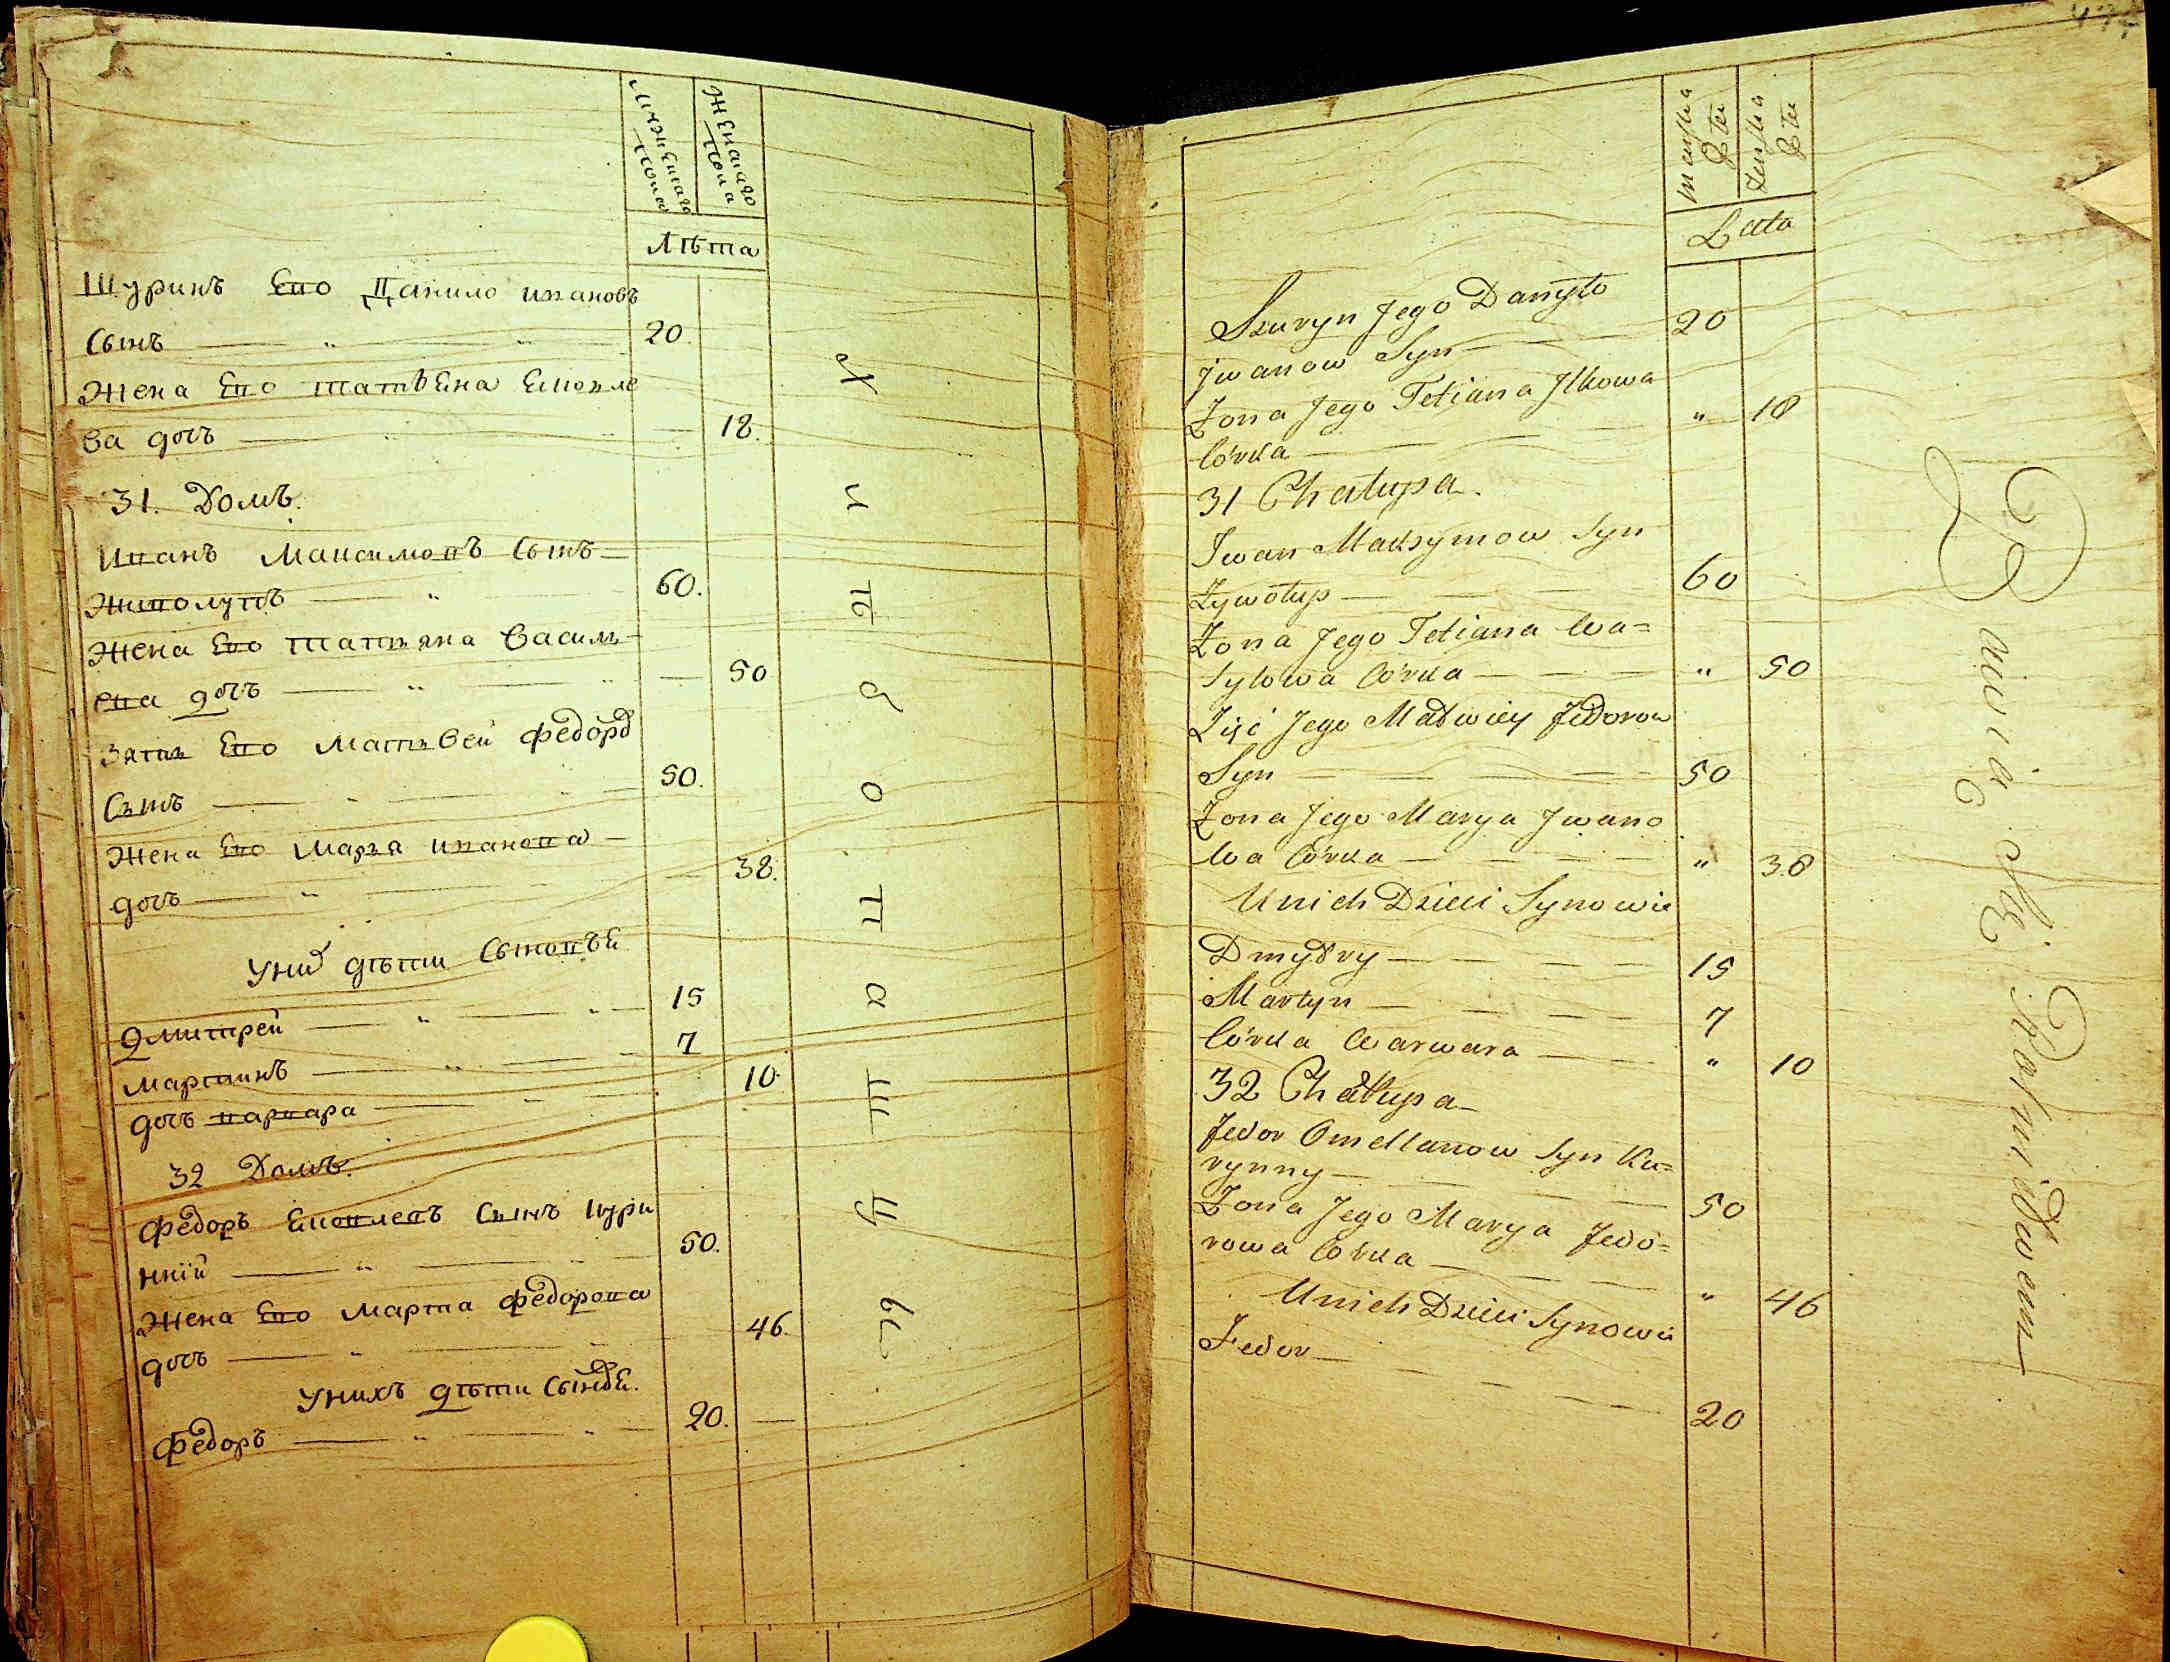 Мужескаго пола
Женскаго пола
Лѣта
Шуринъ Его Данило ивановъ
Сынъ 20.
Жена Его татьѣна
ва дочъ 18.
31. Домъ.
Иванъ Максимовъ Сынъ
Живолупъ 60.
Жена Его татьяна василь
ева дочъ 50
Зять Его Матьвей федоров
Сынъ 50.
Жена Его Маръя иванова
дочъ 38.
Уних дѣти Сыновъя
Дмитрей 15
мартинъ 7
дочъ варвара 10.
32 Домъ.
Федоръ Сынъ Кури
нний 50.
Жена Его Марта федорова
дочъ 46.
Унихъ дѣти
Федоръ 20.
Хлѣбопашцы
Męska Płeć
Żeńska Płeć
Lata
Szuryn Jego Danyło
Jwanow Syn 20
Żona Jego Tetiana Jlkowa
Córka " 18
31 Chałupa.
Jwan Maksymow Syn
Żywołup 60
Żona Jego Tetiana Wa=
sylowa Córka " 50
Zięć Jego Matwiey Fedorow
Syn 50
Żona Jego Marya Jwano
wa Córka " 38
Unich Dzieci Synowie
Dmytry 15
Martyn 7
Córka Warwara " 10
32 Chałupa
Fedor Omellanow Syn Ku=
rynny 50
Żona Jego Marya Fedo=
rowa Córka " 46
Unich Dzieci Synowie
Fedor 20
Bawią Się Rolnictwem